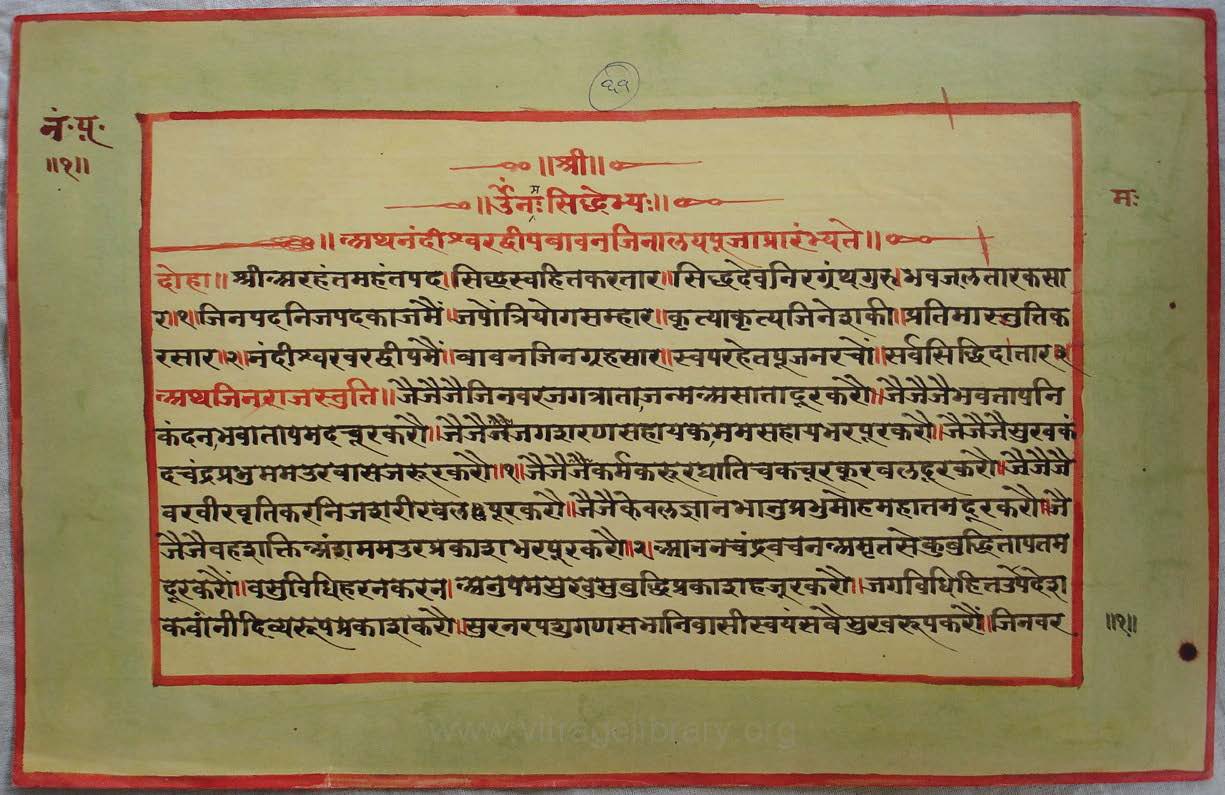 ११
नं॰ पू॰
॥१॥
॥श्री॥
॥ॐनमः सिद्धेभ्यः॥
॥अथनंदीश्वरद्वीपबावनजिनालयपूजाप्रारंभ्यते॥
मः
दोहा॥ श्रीअरहंतमहंतपद॥सिद्धस्वहितकरतार॥सिद्धदेवनिरग्रंथगुरु॥भवजलतारकसा
र॥१॥जिनपदनिजपदकाजमैं॥जपौंत्रियोगसम्हार॥कृत्याकृत्यजिनेशकी॥प्रतिमास्तुतिक
रसार॥२॥नंदीश्वरवरद्वीपमैं॥बावनजिनगृहसार॥स्वपरहेतपूजनरचौं॥सर्वसिद्धिदातार॥३॥
अथजिनराजस्तुति॥ जैजैजैजिनवरजगत्राता॥जन्मअसातादूरकरौ॥जैजैजैभवतापनि
कंदन॥भवातापमदचूरकरौ॥जैजैजैजगशरणसहायक॥ममसहायभरपूरकरौ॥जैजैजैसुखकं
दचंद्रप्रभु॥ममउरवासजरूरकरौ॥१॥जैजैजैकर्मकरूरघातिचकचूरकूरबलदूरकरौ॥जैजैजै
वरवीरवृतिकरनिजशरीरबल पूरकरौ॥जैजैकेवलज्ञानभानुप्रभुमोहमहातमदूरकरौ॥जै
जैजैवहशक्तिअंशममउरप्रकाशभरपूरकरौ॥२॥आननचंद्रवचनअमृतसे बुद्धितापतम
दूरकरौ॥वसुविधिहरनकरन॥अनुपमसुखसुबुद्धिप्रकाशहजूरकरौ॥जगविधिहितउपदेश
कबांनीदिव्यरूपप्रकाशकरौ॥सुरनरपशुगणसभानिवासीस्वयंसवैसुखरूपकरौ॥जिनवर
॥१॥
www.vitragelibrary.org